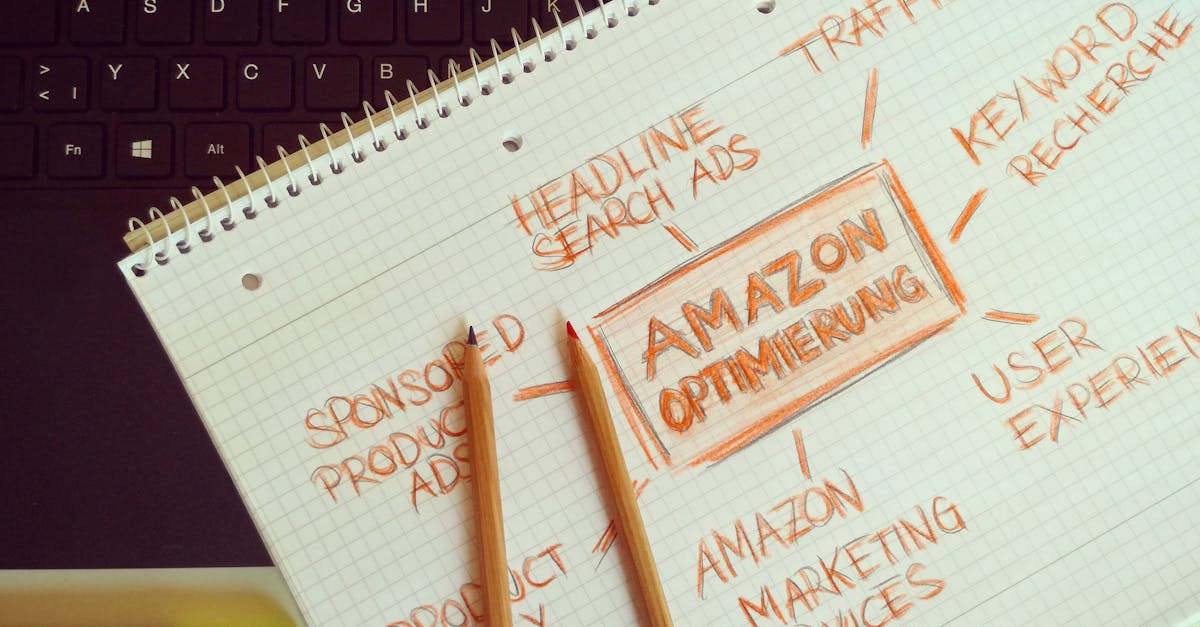 A S D F G H J K
> Y X C V B
< |
Fn Alt
TRAFFI
KEYWORD
RECHERCHE
HEADLINE
SEARCH ADS
AMAZON
OPTIMIERUNG
SPONSORED
PRODUCT
ADS
USER
EXPERIEN
AMAZON
MARKETING
VICES
PRODUCT
Y